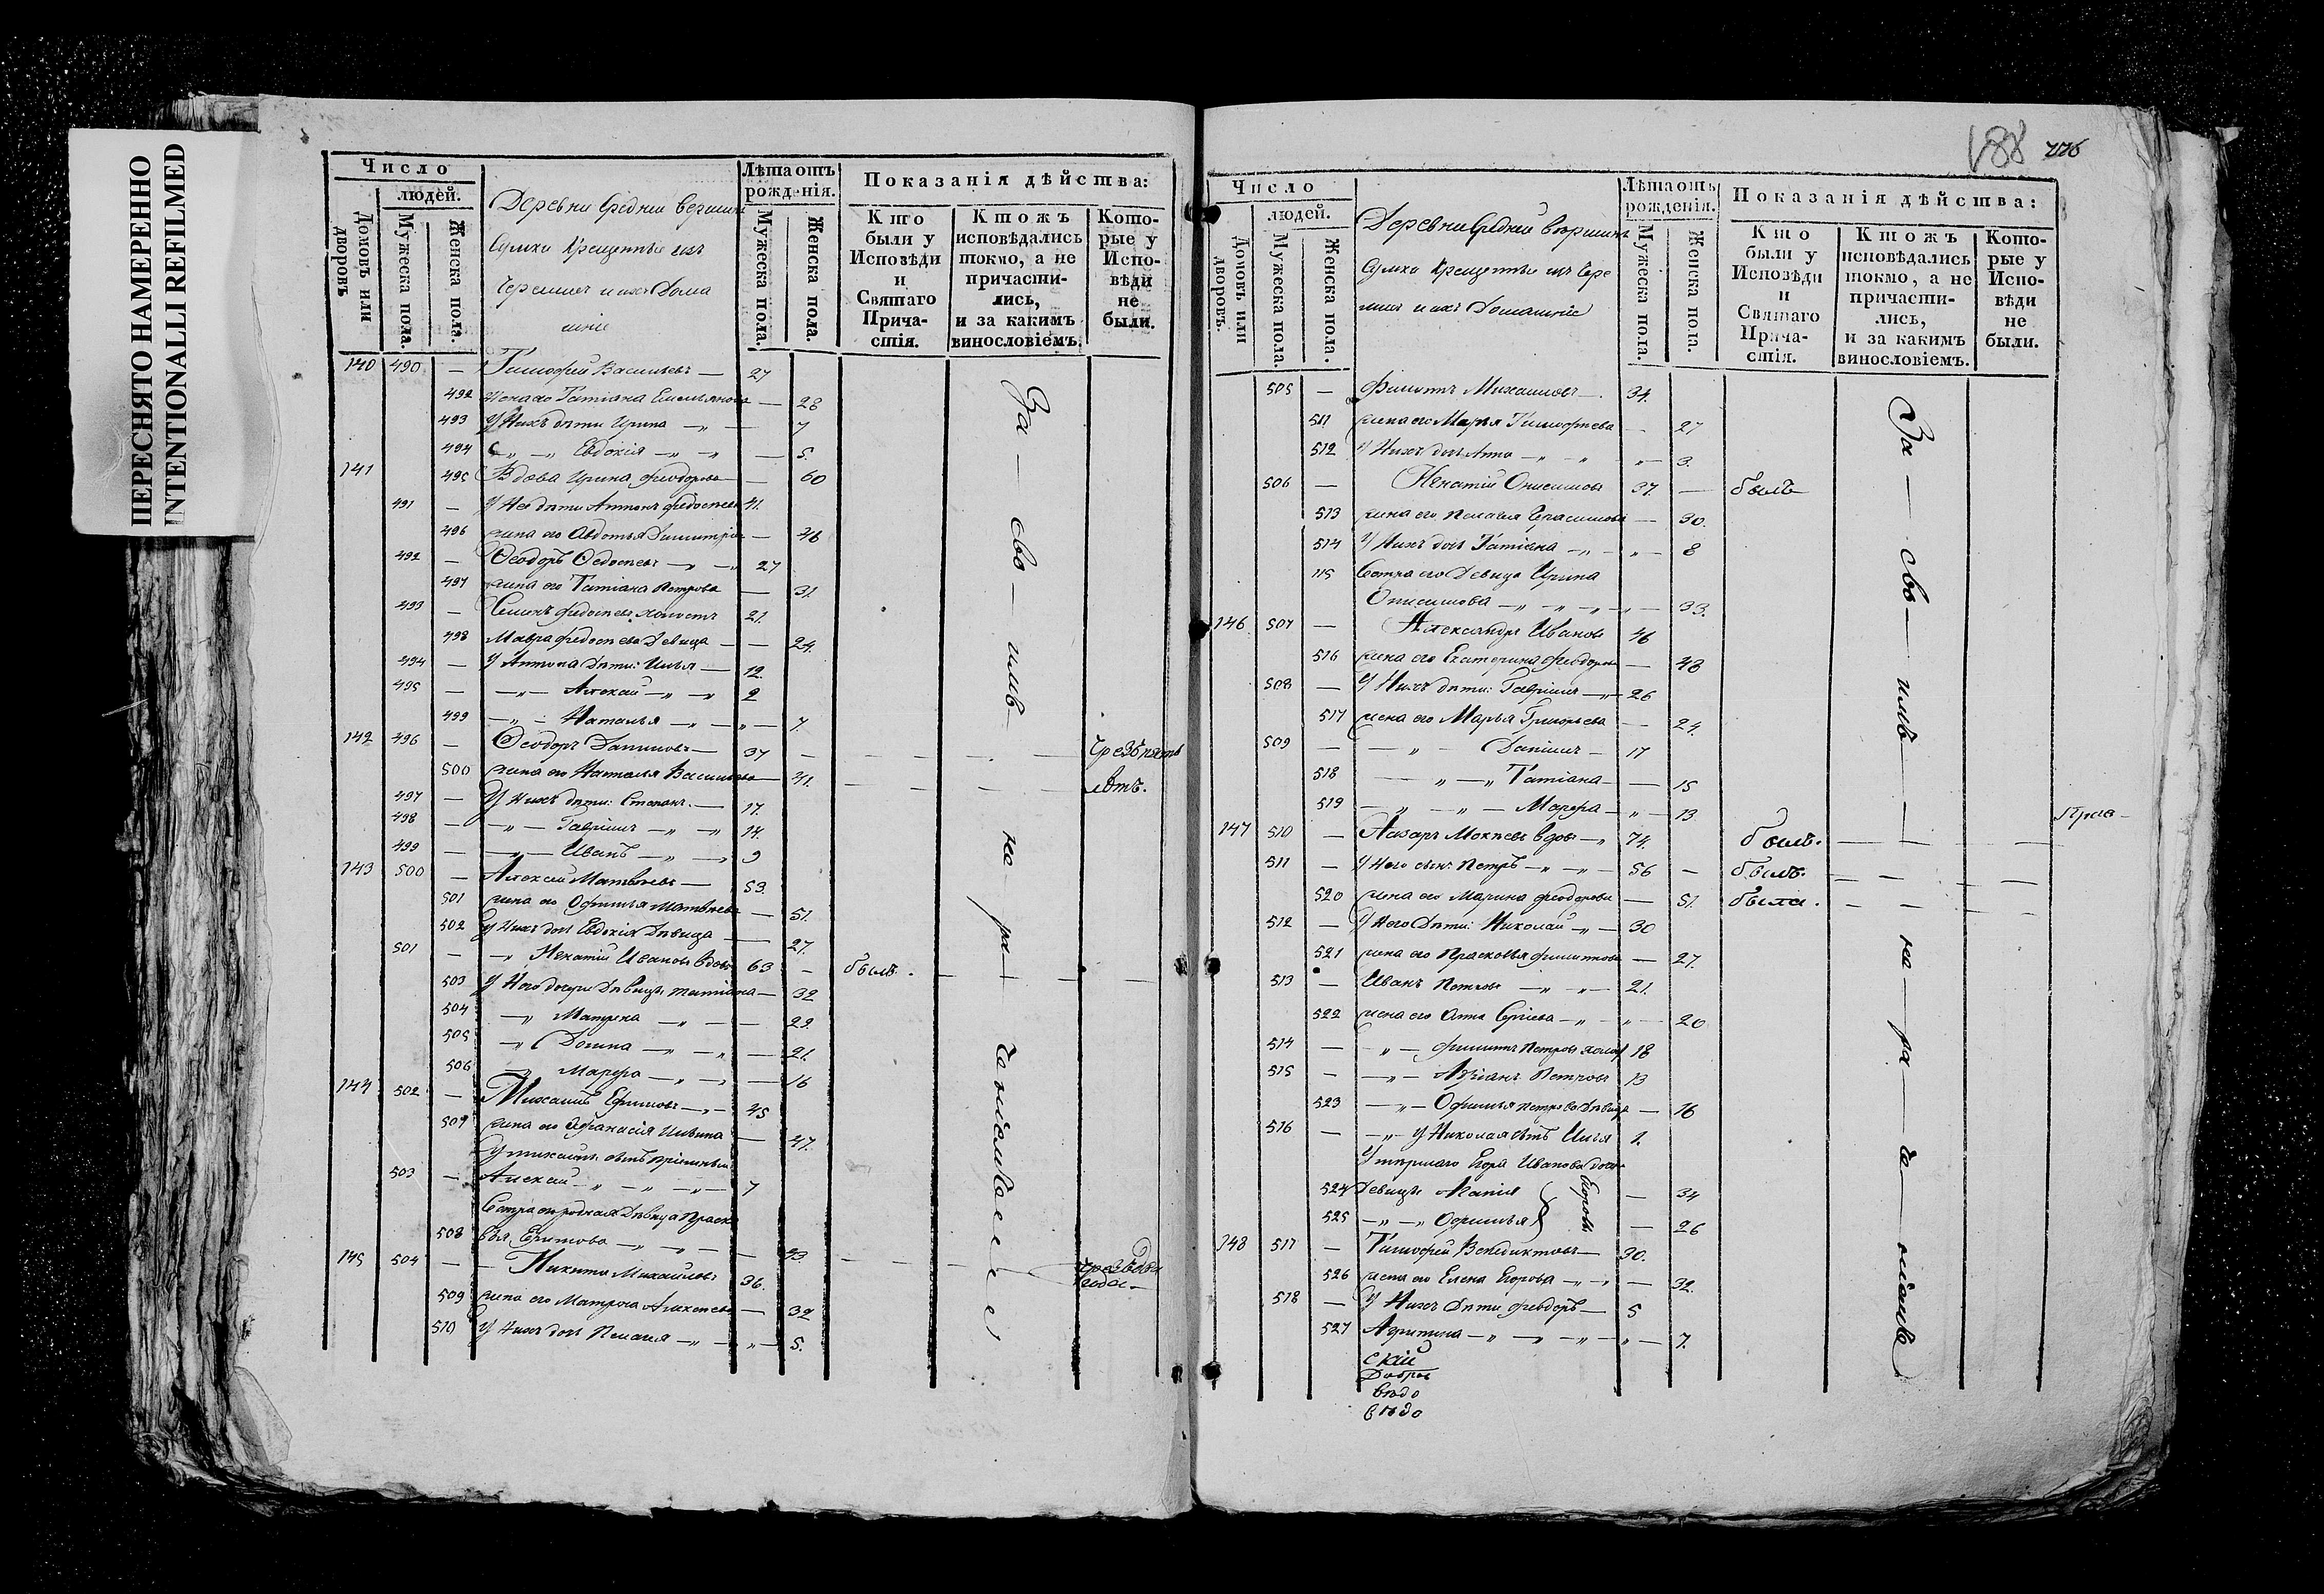 ПЕРЕСНЯТО НАМЕРЕННО
INTENTIONALLI REFILMED
Число
людей.
Домовъ или дворовъ
Мужеска пола.
Женска пола.
Деревни Средней вершины
Сумки Крещенные изъ
Черемисъ и ихъ Дома
шніе
Лѣта отъ рожденія.
Мужеска пола.
Женска пола.
Показанія дѣйства:
Кто были у Исповѣди и Святаго Прича-стія.
Ктожъ исповѣдались токмо, а не причасти-лись, и за какимъ винословіемъ.
Кото-рые у Испо-вѣди не были.
140 490 — Тимофей Васильевъ — 27
492 жена его Татіана Емельянова — 28
493 У Нихъ дѣти Ирина — „ — 7
494 — „ — „ Евдокія — „ — „ — 5.
141 495 Вдова Ирина Феодорова — 60
491 — У Нея дѣти Антонъ Федосѣевъ 41.
496 жена его Авдотья Димитріе — 46
492 — Феодоръ Федосѣевъ — „ — „ 27
497 жена его Татіана Петрова — 31.
493 — Семенъ Федосѣевъ холостъ 21.
498 Мавра Федосѣева Девица — — 24.
494 — У Антона Дѣти: Илья — 12.
495 — — „ — Алексей — „ — „ 2
499 — „ — Наталья — „ — „ — 7.
142 496 — Феодоръ Даниловъ — 37 — — — — Чрезъ пять
500 жена его Наталья Васильева — 41. — — — — лѣтъ.
497 — У Нихъ дѣти: Степанъ. — 17.
498 — — „ — Гавріилъ — „ — „ 14.
499 — — „ — Иванъ — „ — „ 9
143 500 — Алексей Матвѣевъ — 53.
501 жена его Офимья Матвѣева — 51.
502 У Нихъ дочь Евдокія Дѣвица — 27.
501 — — „ Игнатій Ивановъ вдовъ 63 — былъ. — — —
503 У Него дочери Дѣвицы Татіана — 32
504 — „ Матрена — „ — — 29.
505 — „ Домна — „ — „ — 21.
506 — „ Марфа — „ — „ — 16
144 502 — Михаилъ Ефимовъ — „ — 45
507 жена его Афанасія Ильина — 47.
У Михаила
503 — Алексей — „ — „ — „ — 7
Сестра его родная Дѣвица Праско
508 вья Ефимова — „ — „ — — 23.
145 504 — — Никита Михайловъ 36. — — — чрезъ два
года —
509 жена его Матрона Алексѣева — 32
510 У Нихъ дочь Пелагея — „ — „ — 5.
За — свѣ — шлѣ — ко — ра —
188
226
Число
людей.
Домовъ или дворовъ.
Мужеска пола.
Женска пола.
Деревни Средней вершины
Сумки Крещенные изъ Чере
мисъ и ихъ Домашніе
Лѣта отъ рожденія.
Мужеска пола.
Женска пола.
Показанія дѣйства:
Кто были у Исповѣди и Святаго Прича-стія.
Ктожъ исповѣдались токмо, а не причасти-лись, и за какимъ винословіемъ.
Кото-рые у Испо-вѣди не были.
505 — Филиппъ Михаиловъ — . 34.
511 жена его Марья Тимофѣева — 27
512 У Нихъ дочь Анна — „ — „ „ — 3.
506 — Игнатій Онисимовъ 37. — былъ
513 жена его Пелагея Герасимова — 30.
514 У Нихъ дочь Татіана — „ — „ — 8
515 Сестра его Девица Ирина
Онисимова — „ — „ — „ — 33.
146 507 — Александръ Ивановъ 46
516 жена его Екатерина Феодорова — 48
508 — У Нихъ дѣти: Гавріилъ — „ — 26
517 жена его Марья Григорьева — 24.
509 — — „ — Даніилъ — 17
518 — „ — „ Татіана — — 15
519 — „ — „ — Марфа — „ — 13
147 510 — Назаръ Мокѣевъ вдовъ — „ 74. былъ. — — — —
511 — У Него сынъ Петръ — „ — „ — 56 — былъ. — — — —
520 жена его Марина Феодорова — 51. была. — — — —
512 — У Него Дѣти: Николай — „ — 30
521 жена его Прасковья Филиппова — 27.
513 — Иванъ Петровъ — „ — „ — 21.
522 жена его Анна Сергіева — „ — „ — 20
514 — — „ — Филиппъ Петровъ холос 18
515 — — „ — Адріанъ Петровъ 13
523 — „ — Офимья Петрова Дѣвица — 16
516 — — „ — У Николая сынъ Илья 1.
Умершаго Егора Иванова доче
524 Девицы Марія — 34
525 — „ — „ Офимья — 26
Егоровы
148 517 — Тимофей Венедиктовъ — 30.
526 жена его Елена Егорова — „ — „ — 32.
518 — У Нихъ Дѣти Феодоръ — 5
527 Агрипина — „ — „ — „ — „ — 7.
скій
Добров
вѣдо
вѣдо
За — свѣ — шлѣ — ко — ра —